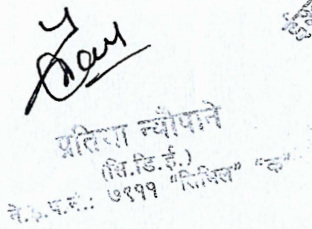 प्रतिभा न्यौपाने
(सि.डि.ई.)
ने.ई.प.नं.: ७९११ "सिभिल" "क"